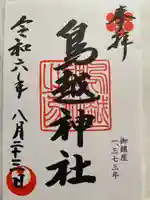 奉拝
鳥越神社
御鎮座
一三七三年
令和六年
八月二十三日